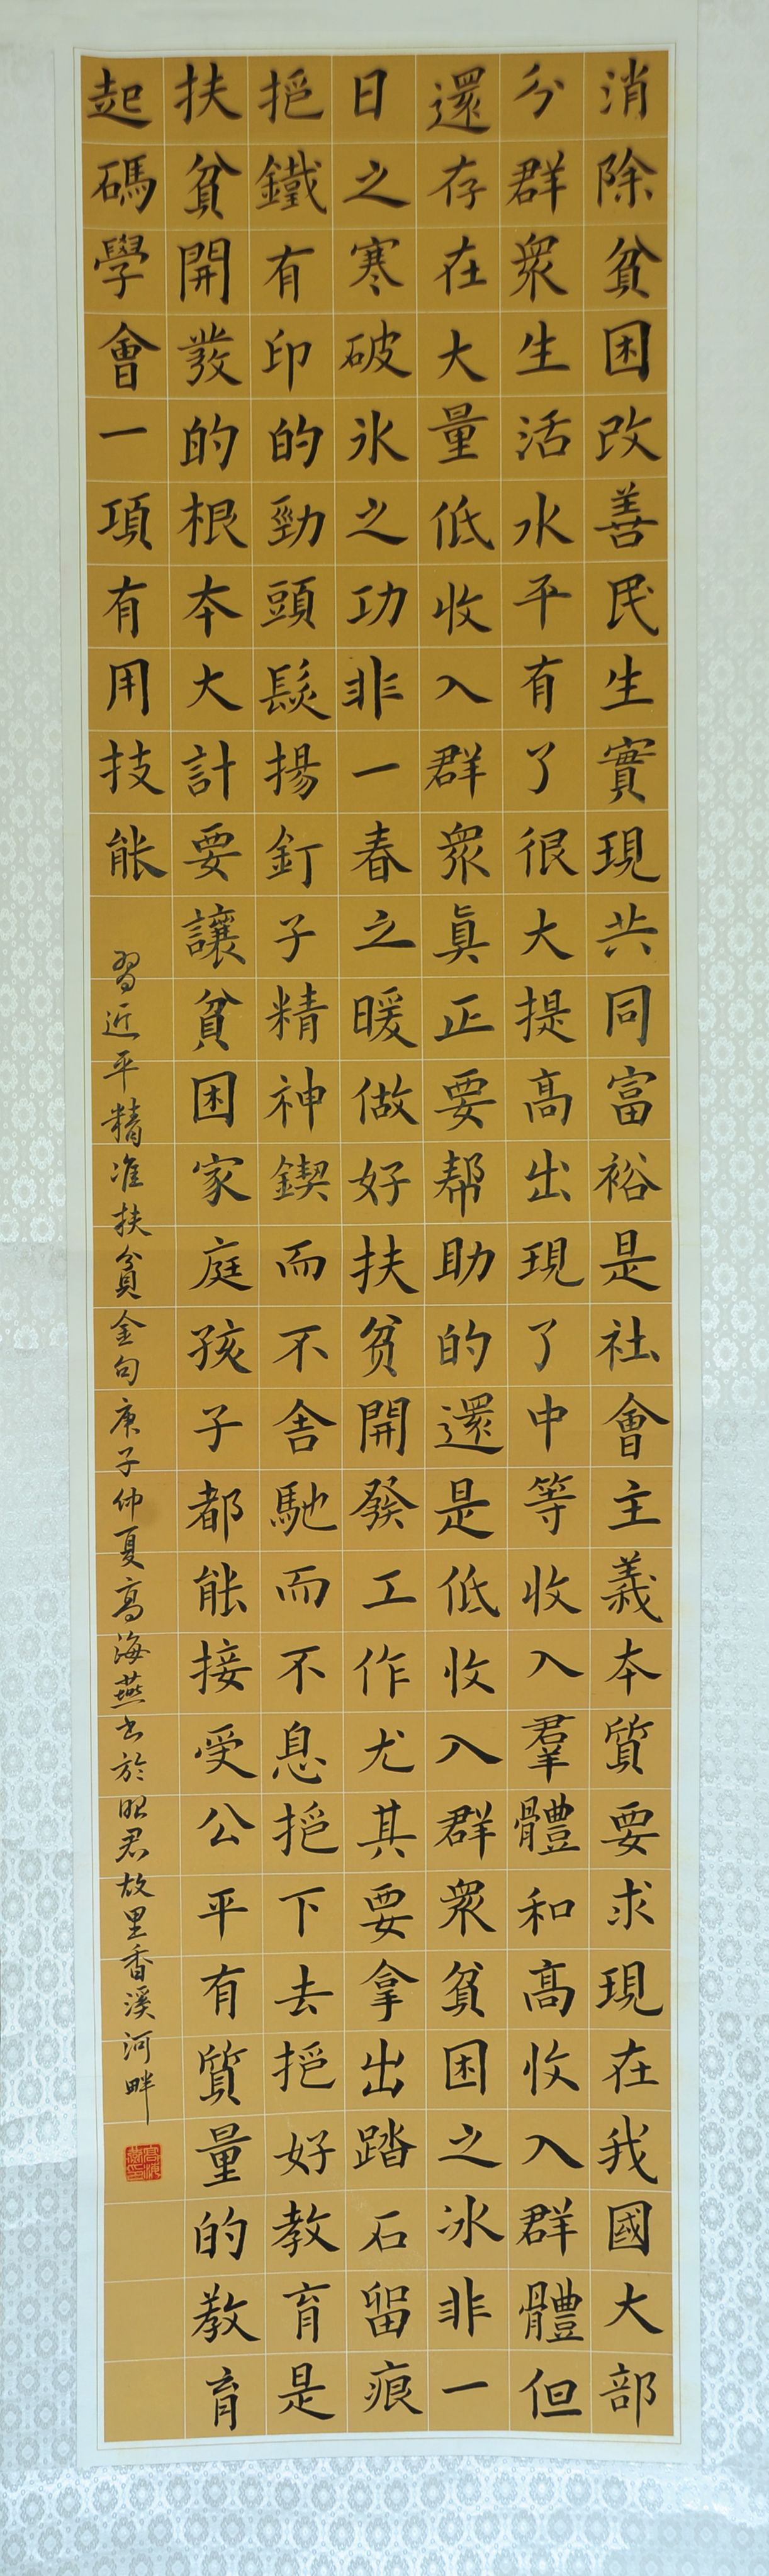 消除貧困改善民生實現共同富裕是社會主義本質要求現在我國大部
分群衆生活水平有了很大提高出現了中等收入羣體和高收入群體但
還存在大量低收入群衆真正要帮助的還是低收入群衆貧困之冰非一
日之寒破冰之功非一春之暖做好扶贫開發工作尤其要拿出踏石留痕
抓鐵有印的勁頭髮揚釘子精神鍥而不舍馳而不息抓下去抓好教育是
扶貧開發的根本大計要讓貧困家庭孩子都能接受公平有質量的教育
起碼學會一項有用技能
習近平精准扶貧金句庚子仲夏高海燕书於昭君故里香溪河畔